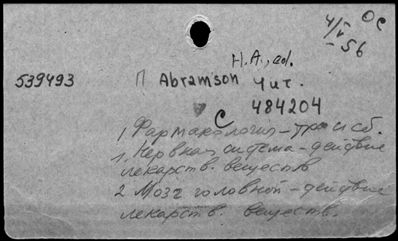 4/V – 56 ОС
H.A., ed.
539493 П Abramson Чит.
С 484204
1, Фармакология – тр. и сб.
1. Нервная система – действие
лекарств. веществ
2 Мозг головной – действие
лекарств. веществ.